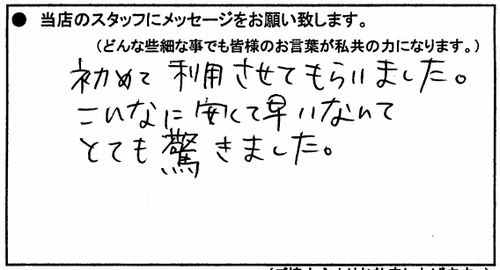 ● 当店のスタッフにメッセージをお願い致します。
（どんな些細な事でも皆様のお言葉が私共の力になります。）
初めて利用させてもらいました。
こんなに安くて早いなんて
とても驚きました。